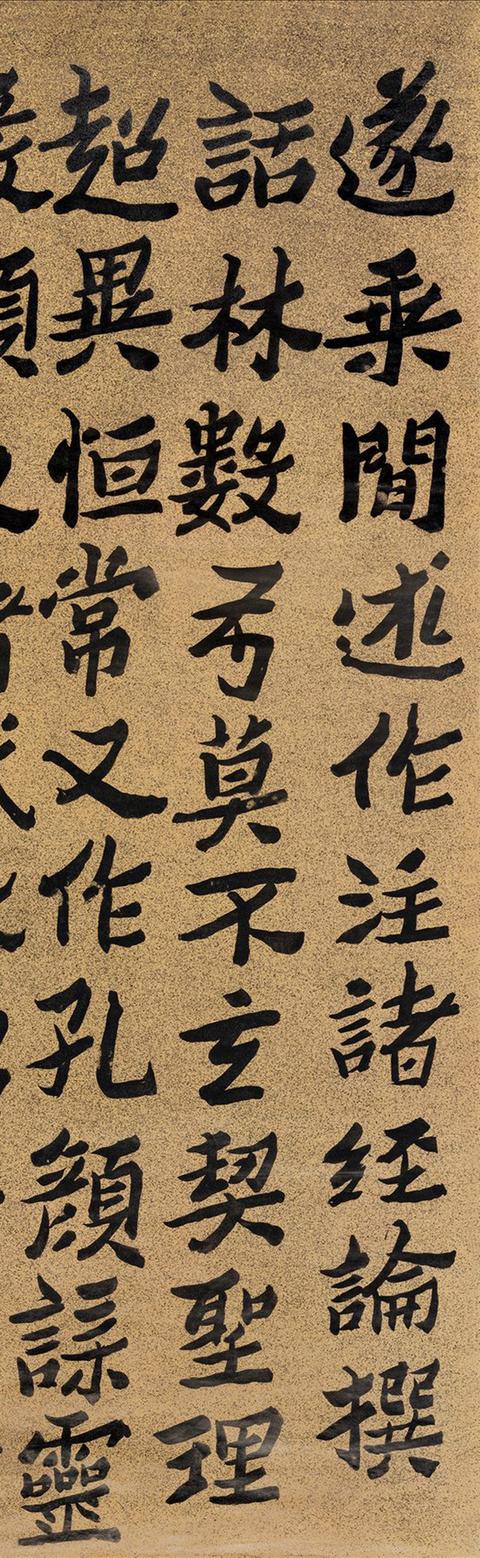 遂乘間述作注諸經論撰
話林數弓莫不玄契聖理
超異恒常又作孔顏誄靈